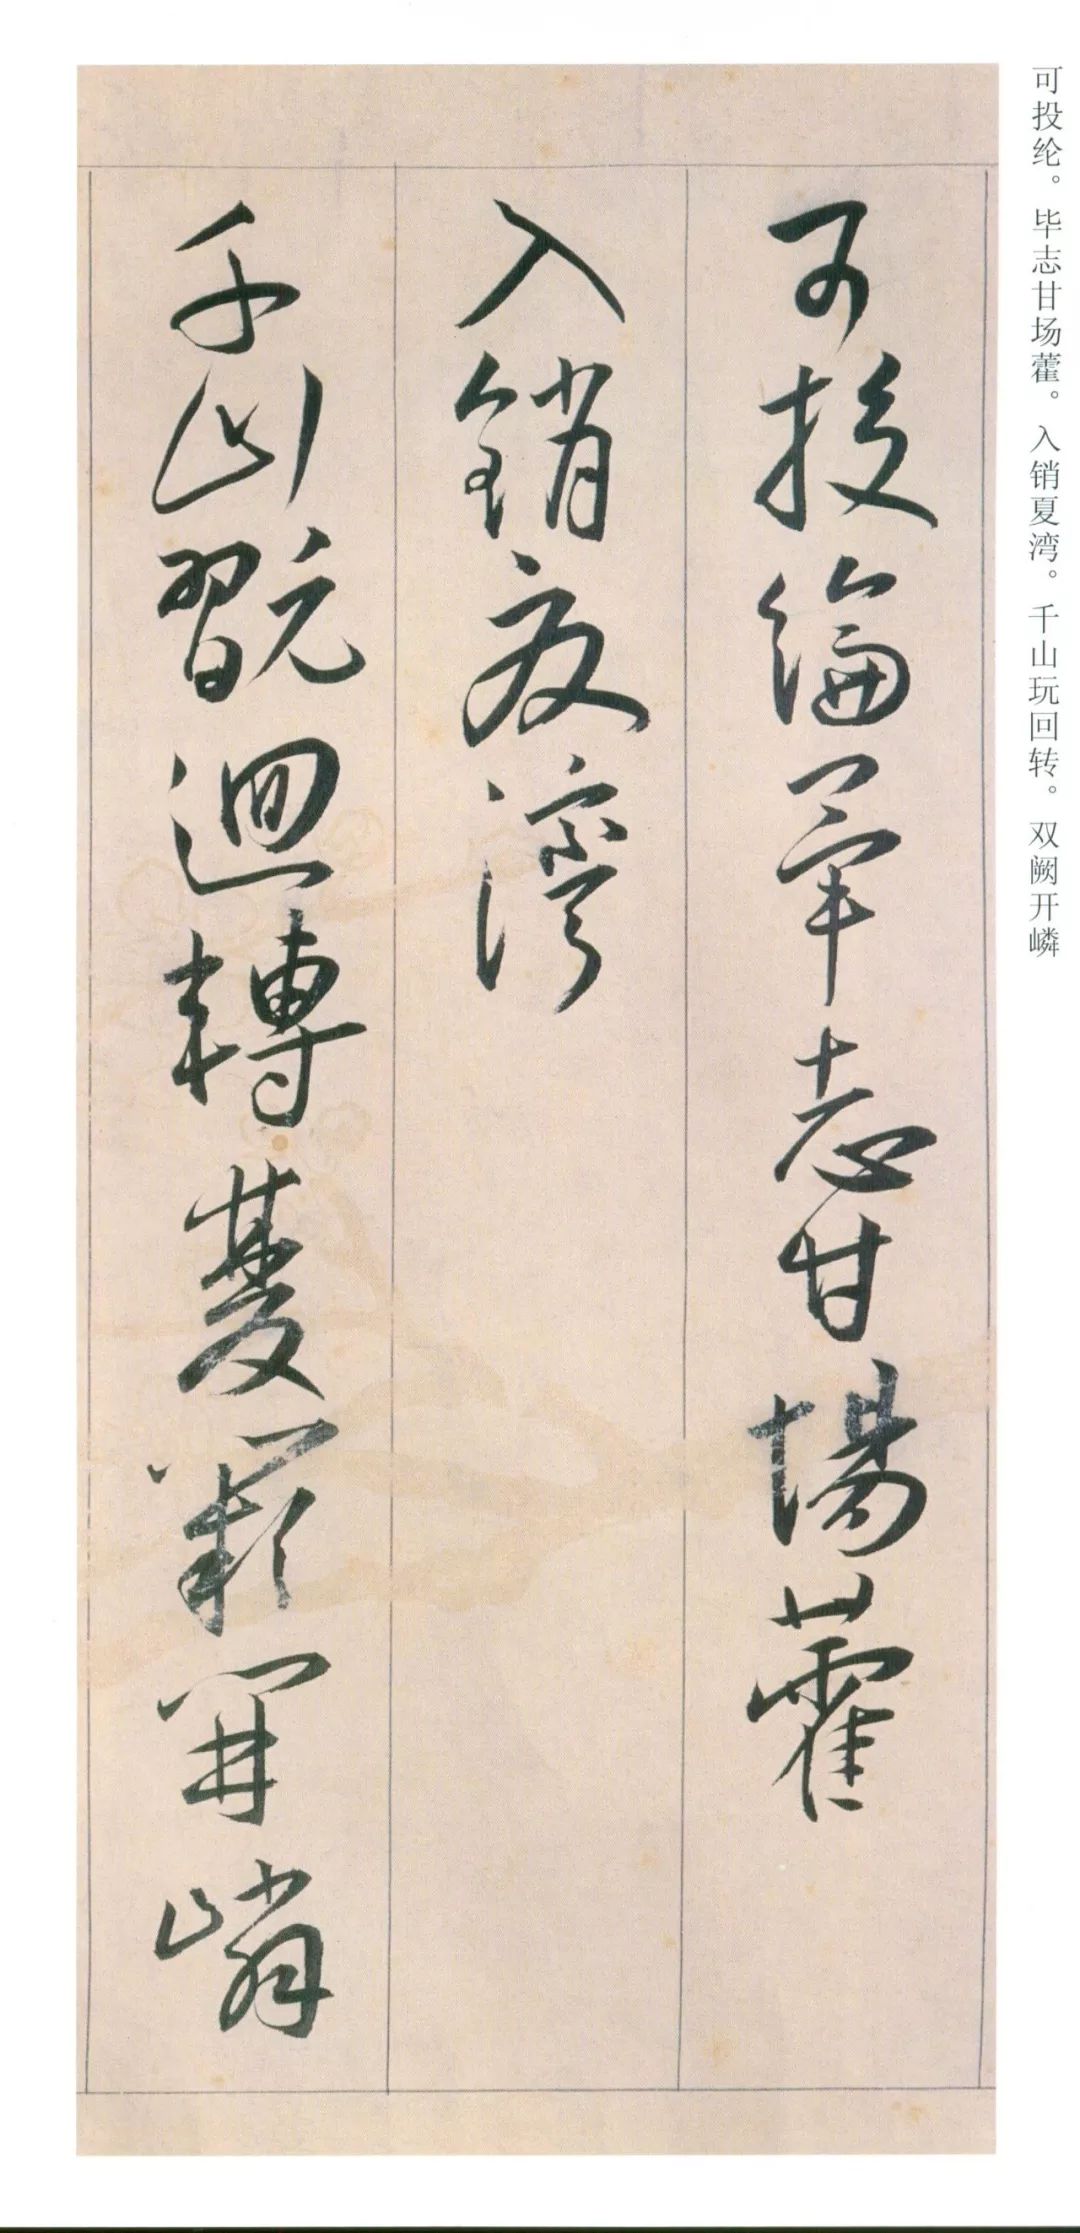 可投纶。毕志甘场藿。入销夏湾。千山玩回转。双阙开嶙
可投綸畢志甘場藿
入銷夏灣
千山翫迴轉雙闕開嶙